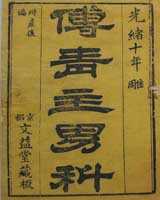 光緒十年雕
傅青主男科
附產後編
京都文益堂藏板